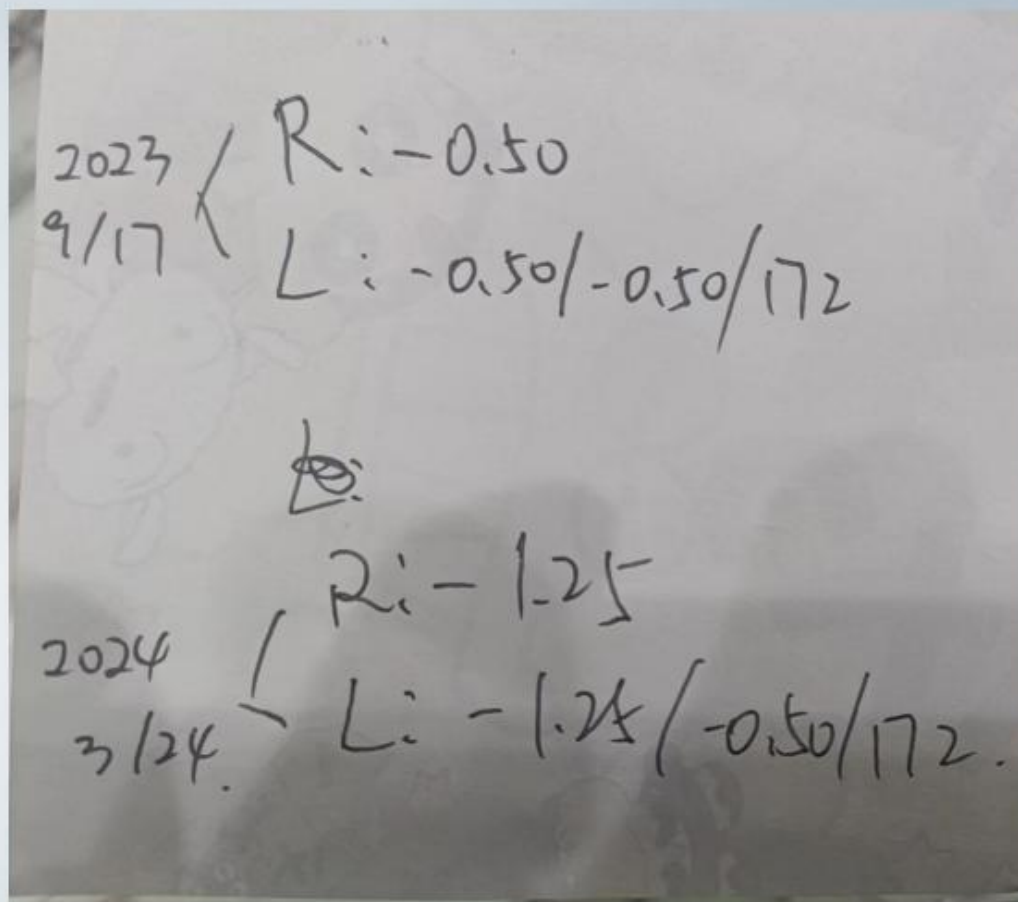 2023
9/17
R: -0.50
L: -0.50/-0.50/172
2024
3/24.
R: -1.25
L: -1.25/-0.50/172.